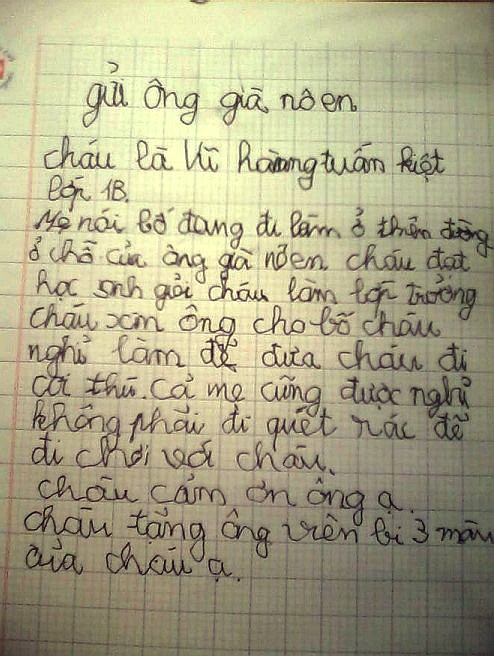 gửi ông già nôen
cháu là Vũ hoàng tuấn kiệt
lớp 1B.
Mẹ nói bố đang đi làm ở thiên đường
ở chỗ của ông già nôen cháu đạt
học sinh giỏi cháu làm lớp trưởng
cháu xin ông cho bố cháu
nghỉ làm để đưa cháu đi
coi thú. cả mẹ cũng được nghỉ
không phải đi quét rác để
đi chơi với cháu.
cháu cảm ơn ông ạ.
cháu tặng ông viên bi 3 màu
của cháu ạ.